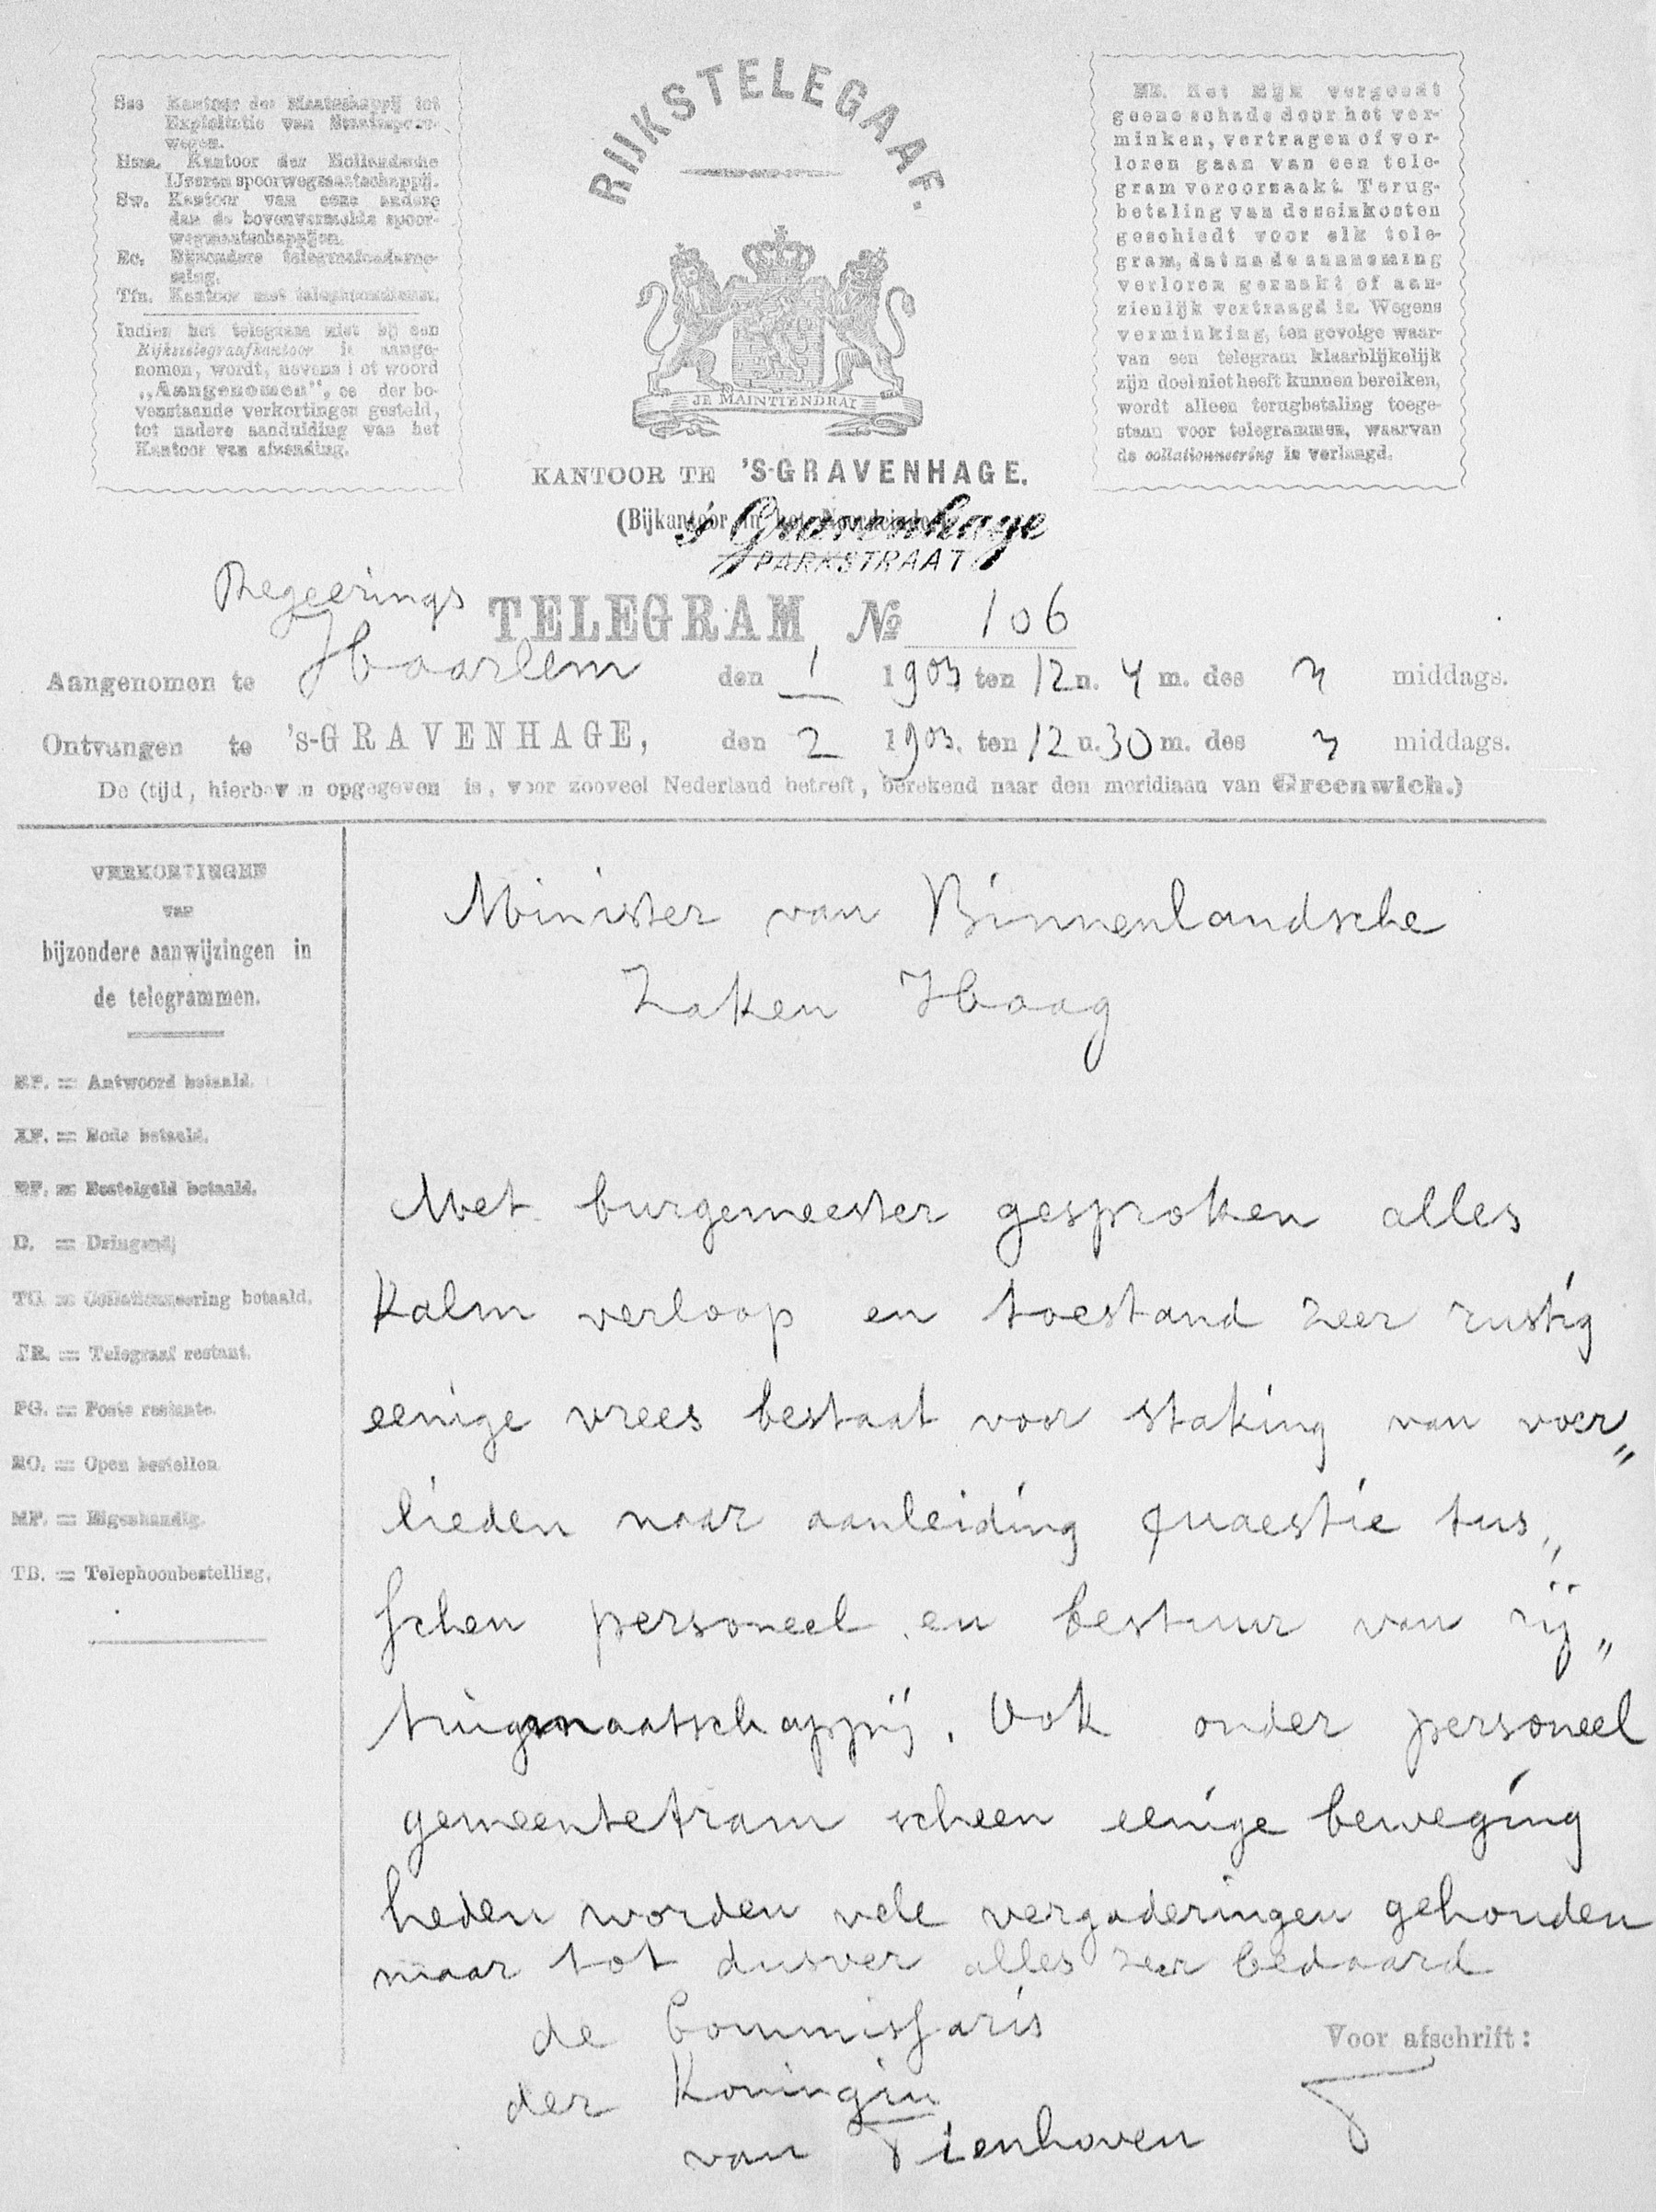 Sss Kantoor der Maatschappij tot
Exploitatie van Staatsspoor-
wegen.
Hsm. Kantoor der Hollandsche
IJzeren spoorwegmaatschappij.
Sw. Kantoor van eene andere
dan de bovenvermelde spoor-
wegmaatschappijen.
Rc. Bijzondere telegraafonderne-
ming.
Tfn. Kantoor met telephoondienst.
Indien het telegram niet bij een
Rijkstelegraafkantoor is aange-
nomen, wordt, nevens het woord
„Aangenomen”, ee der bo-
venstaande verkortingen gesteld,
tot nadere aanduiding van het
Kantoor van afzending.
RIJKSTELEGRAAF.
JE MAINTIENDRAI
KANTOOR TE 'S-GRAVENHAGE.
(Bijkantoor in het Noordeinde)
's Gravenhage
PARKSTRAAT
NB. Het Rijk vergoedt
geene schade door het ver-
minken, vertragen of ver-
loren gaan van een tele-
gram veroorzaakt. Terug-
betaling van de seinkosten
geschiedt voor elk tele-
gram, dat na de aanneming
verloren geraakt of aan-
zienlijk vertraagd is. Wegens
verminking, ten gevolge waar-
van een telegram klaarblijkelijk
zijn doel niet heeft kunnen bereiken,
wordt alleen terugbetaling toege-
staan voor telegrammen, waarvan
de collationneering is verlangd.
Regeerings TELEGRAM No 106
Aangenomen te Haarlem den 1 1903 ten 12 u. 4 m. des n middags.
Ontvangen te 's-GRAVENHAGE, den 2 1903. ten 12 u. 30 m. des n middags.
De (tijd, hierboven opgegeven is, voor zooveel Nederland betreft, berekend naar den meridiaan van Greenwich.)
VERKORTINGEN
van
bijzondere aanwijzingen in
de telegrammen.
RP. = Antwoord betaald.
XP. = Bode betaald.
RP. = Bestelgeld betaald.
D. = Dringend;
TC. = Collationneering betaald.
TR. = Telegraaf restant.
PG. = Poste restante.
RO. = Open bestellen
MP. = Eigenhandig.
TB. = Telephoonbestelling.
Minister van Binnenlandsche
Zaken Haag
Met burgemeester gesproken alles
kalm verloop en toestand zeer rustig
eenige vrees bestaat voor staking van voer„
lieden naar aanleiding quaestie tus„
schen personeel en bestuur van rij„
tuigmaatschappij. Ook onder personeel
gemeentetram scheen eenige beweging
heden worden vele vergaderingen gehouden
maar tot dusver alles zeer bedaard
de Commissaris
der Koningin
van Tienhoven
Voor afschrift: